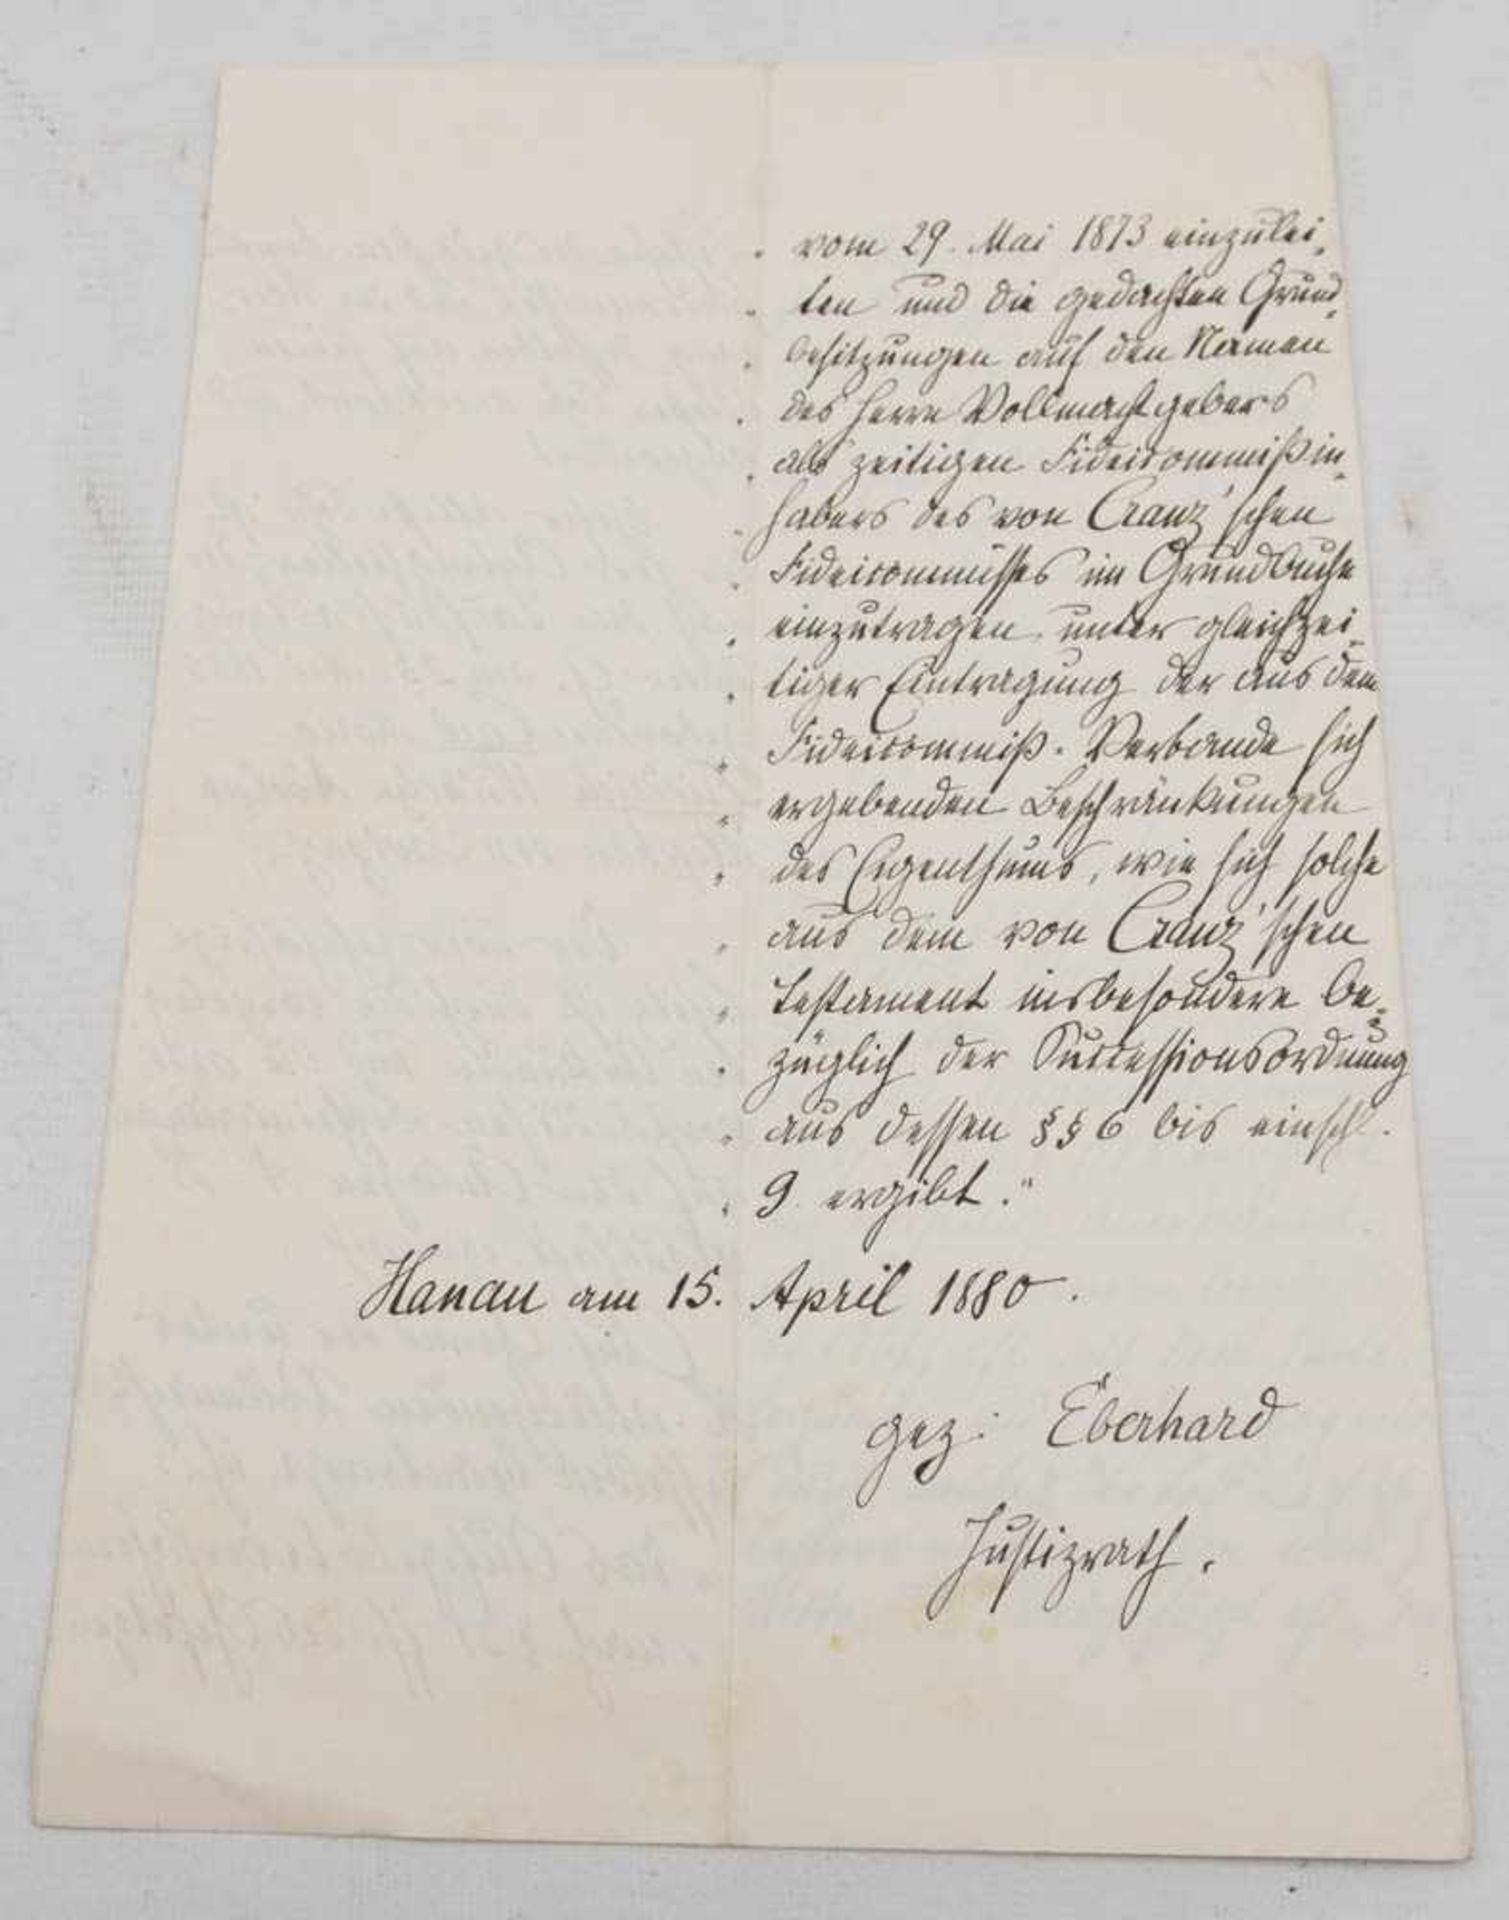 " vom 29. Mai 1873 einzulei-
" ten und die gedachten Grund-
" besitzungen auf den Namen
" des Herrn Vollmachtgebers
" als zeitigen Fideicommißin-
" habers des von Cranz'schen
" Fideicommisses im Grundbuche
" einzutragen unter gleichzei-
" tiger Eintragung der aus dem
" Fideicommiß-Verbande sich
" ergebenden Beschränkungen
" des Eigenthums, wie sich solche
" aus dem von Cranz'schen
" Testament insbesondere be-
" züglich der Successionsordnung
" aus dessen §§ 6 bis einschl.
" 9 ergibt."
Hanau am 15. April 1880.
gez: Eberhard
Justizrath.